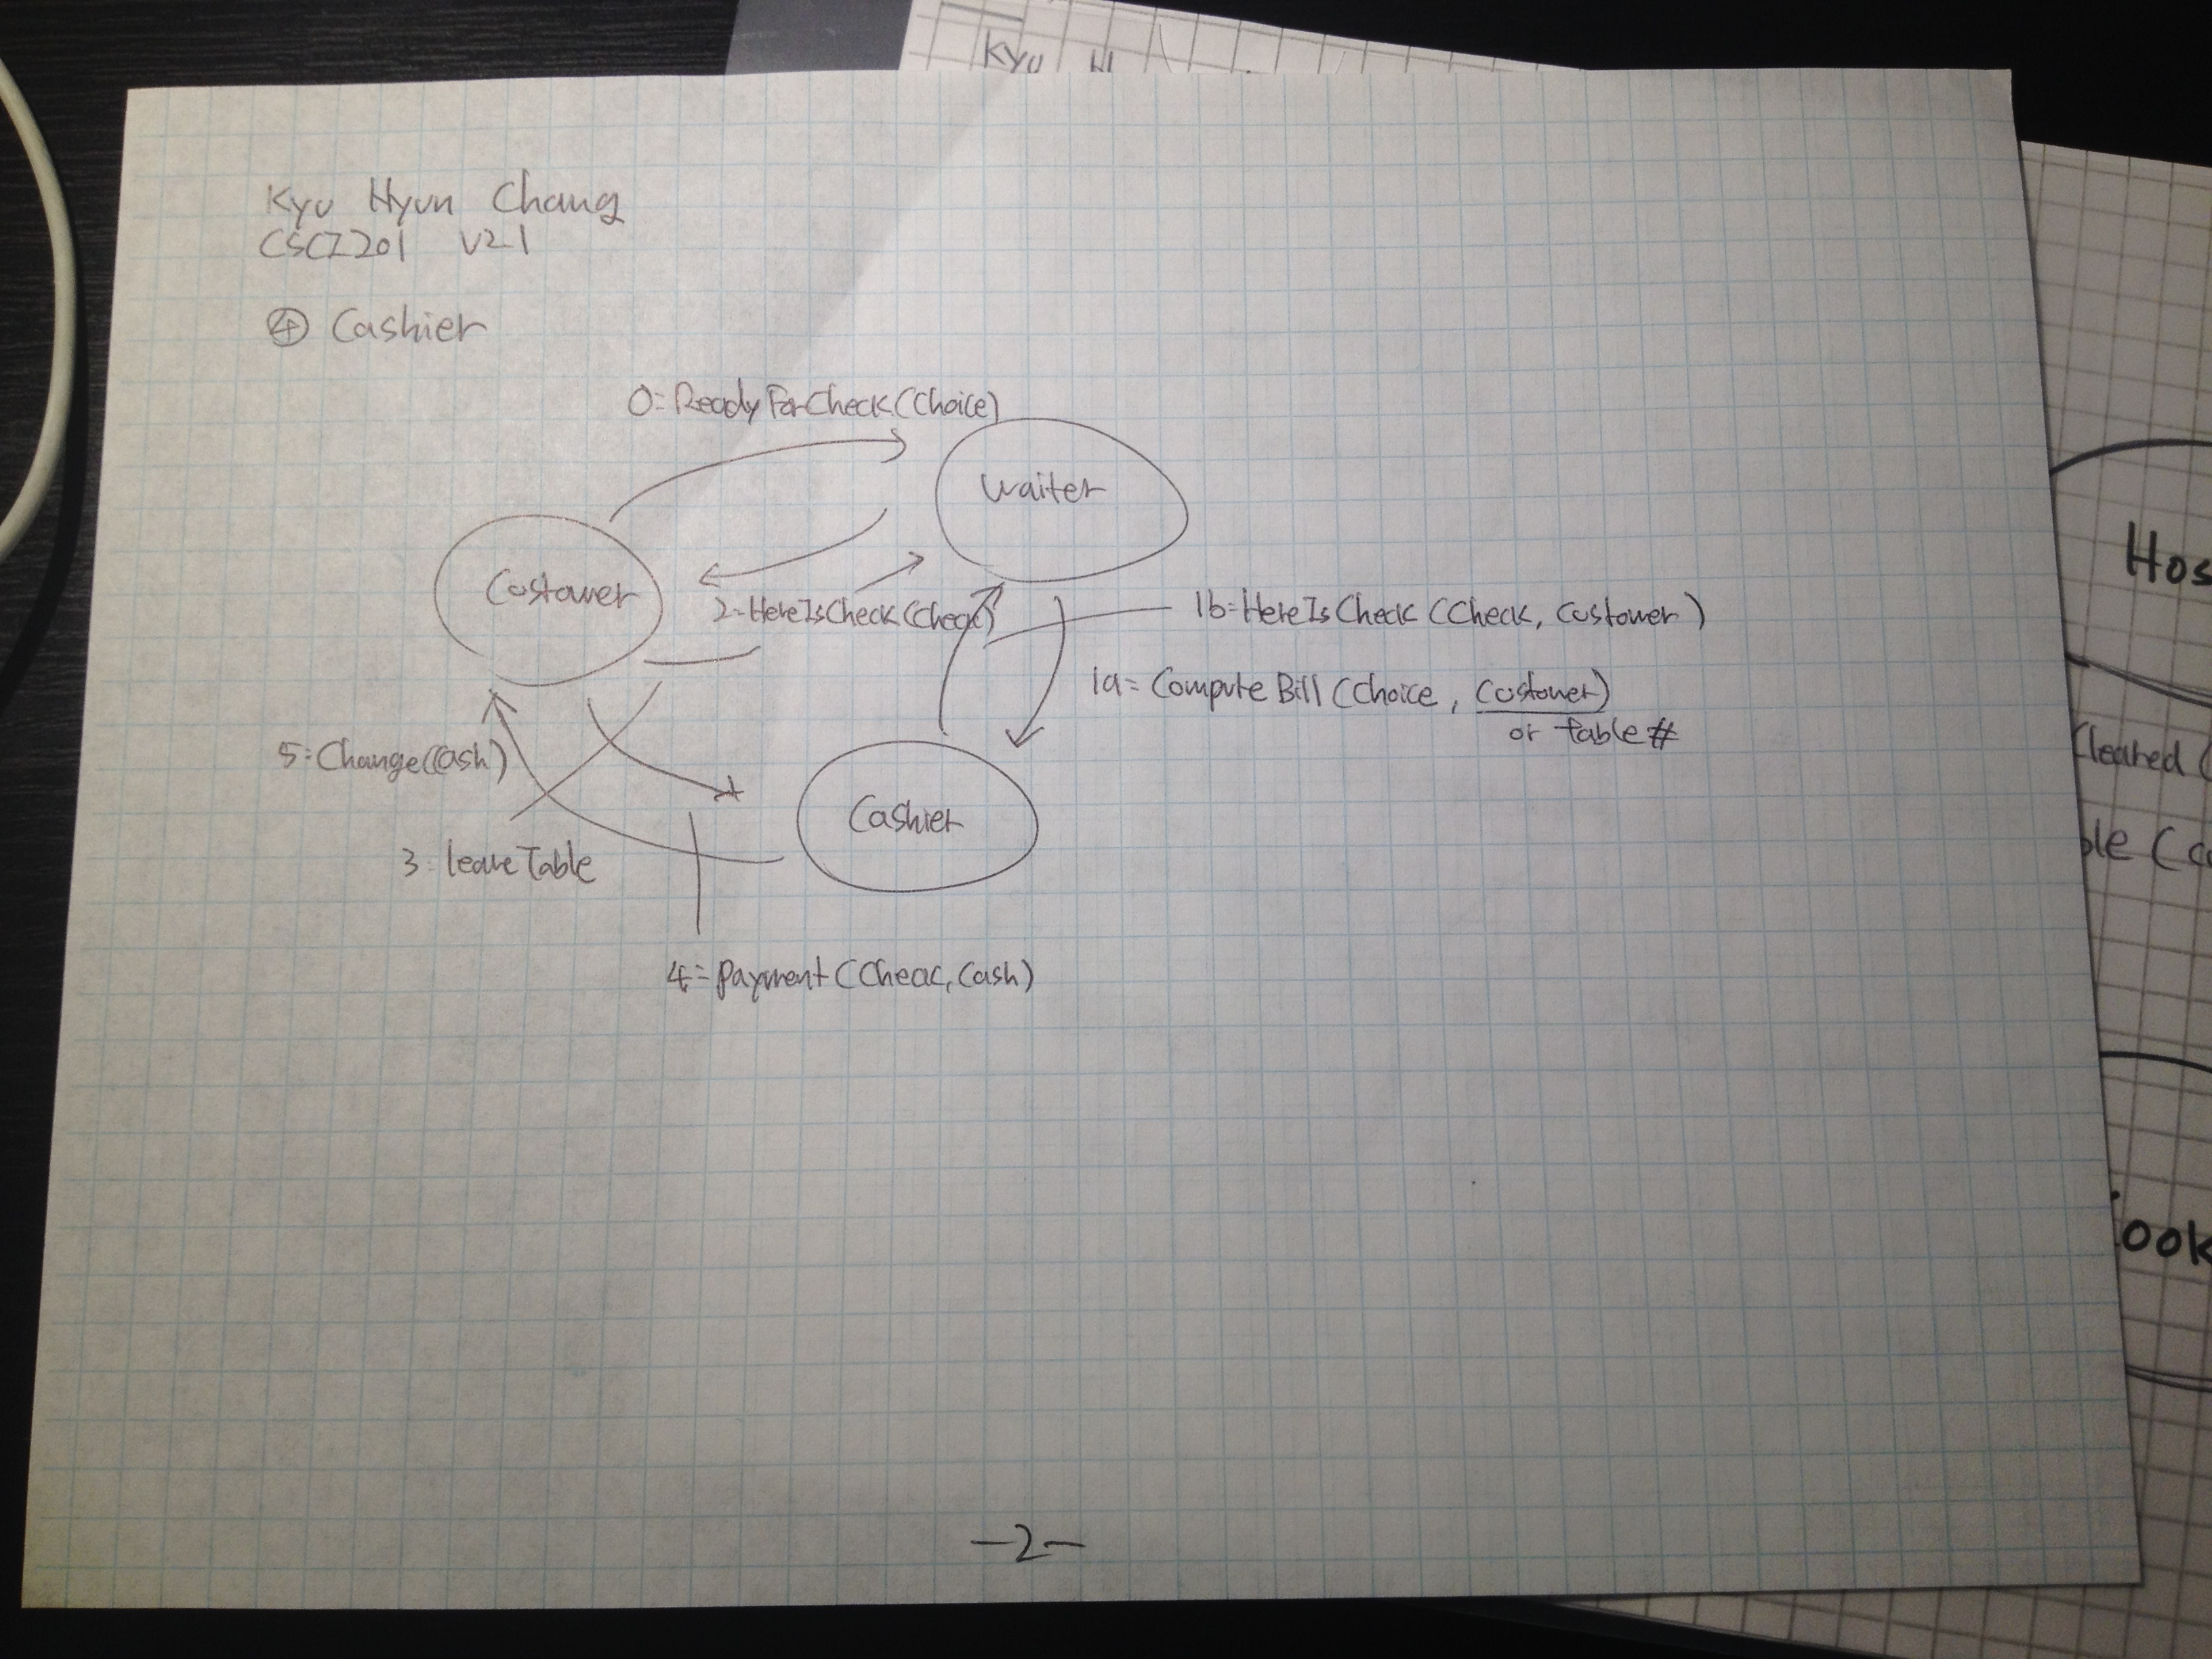 Kyu
Kyu Hyun Chang
CSCI201 V2.1
④ Cashier
0: ReadyForCheck(Choice)
Waiter
Customer
2: HereIsCheck(Check)
1b: HereIsCheck (Check, Customer)
1a: Compute Bill (Choice, Customer)
or table #
5: Change(Cash)
Cashier
3 leaveTable
4: Payment (Check, Cash)
-2-
Hos
Cleared (
ble (
ook